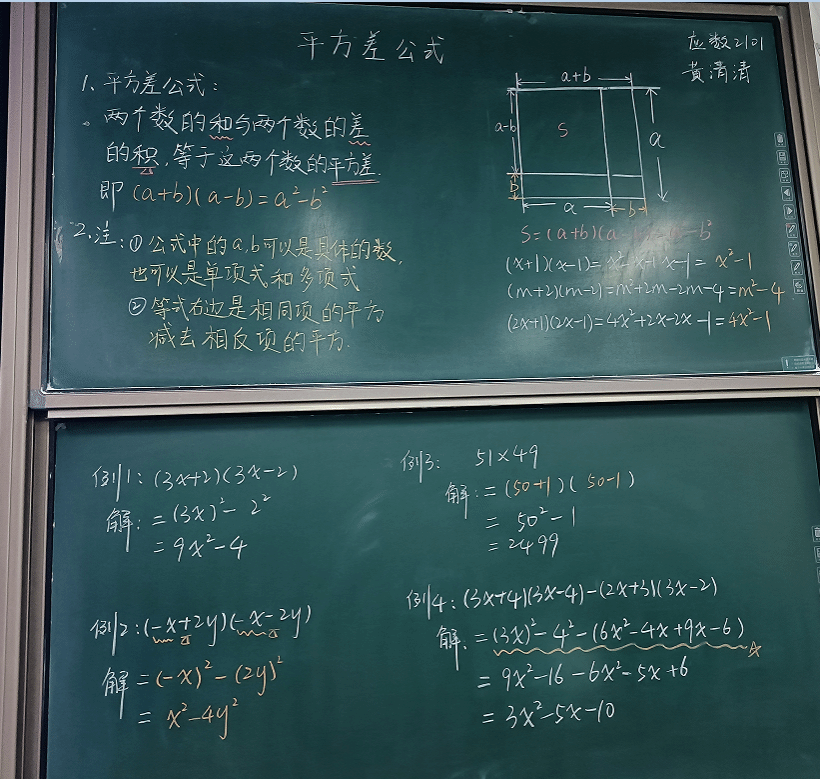 平方差公式
应数2101
黄清清
1、平方差公式：
两个数的和与两个数的差
的积，等于这两个数的平方差.
即 (a+b)(a-b)=a²-b²
2.注：①公式中的a,b可以是具体的数,
也可以是单项式和多项式
②等式右边是相同项的平方
减去相反项的平方.
a+b
a-b
S
a
b
a
b
S=(a+b)(a-b)=a²-b²
(x+1)(x-1)=x²-x+x-1=x²-1
(m+2)(m-2)=m²+2m-2m-4=m²-4
(2x+1)(2x-1)=4x²+2x-2x-1=4x²-1
例1：(3x+2)(3x-2)
解：=(3x)²-2²
=9x²-4
例2：(-x+2y)(-x-2y)
解=(-x)²-(2y)²
=x²-4y²
例3： 51×49
解：=(50+1)(50-1)
=50²-1
=2499
例4：(3x+4)(3x-4)-(2x+3)(3x-2)
解：=(3x)²-4²-(6x²-4x+9x-6)
=9x²-16-6x²-5x+6
=3x²-5x-10